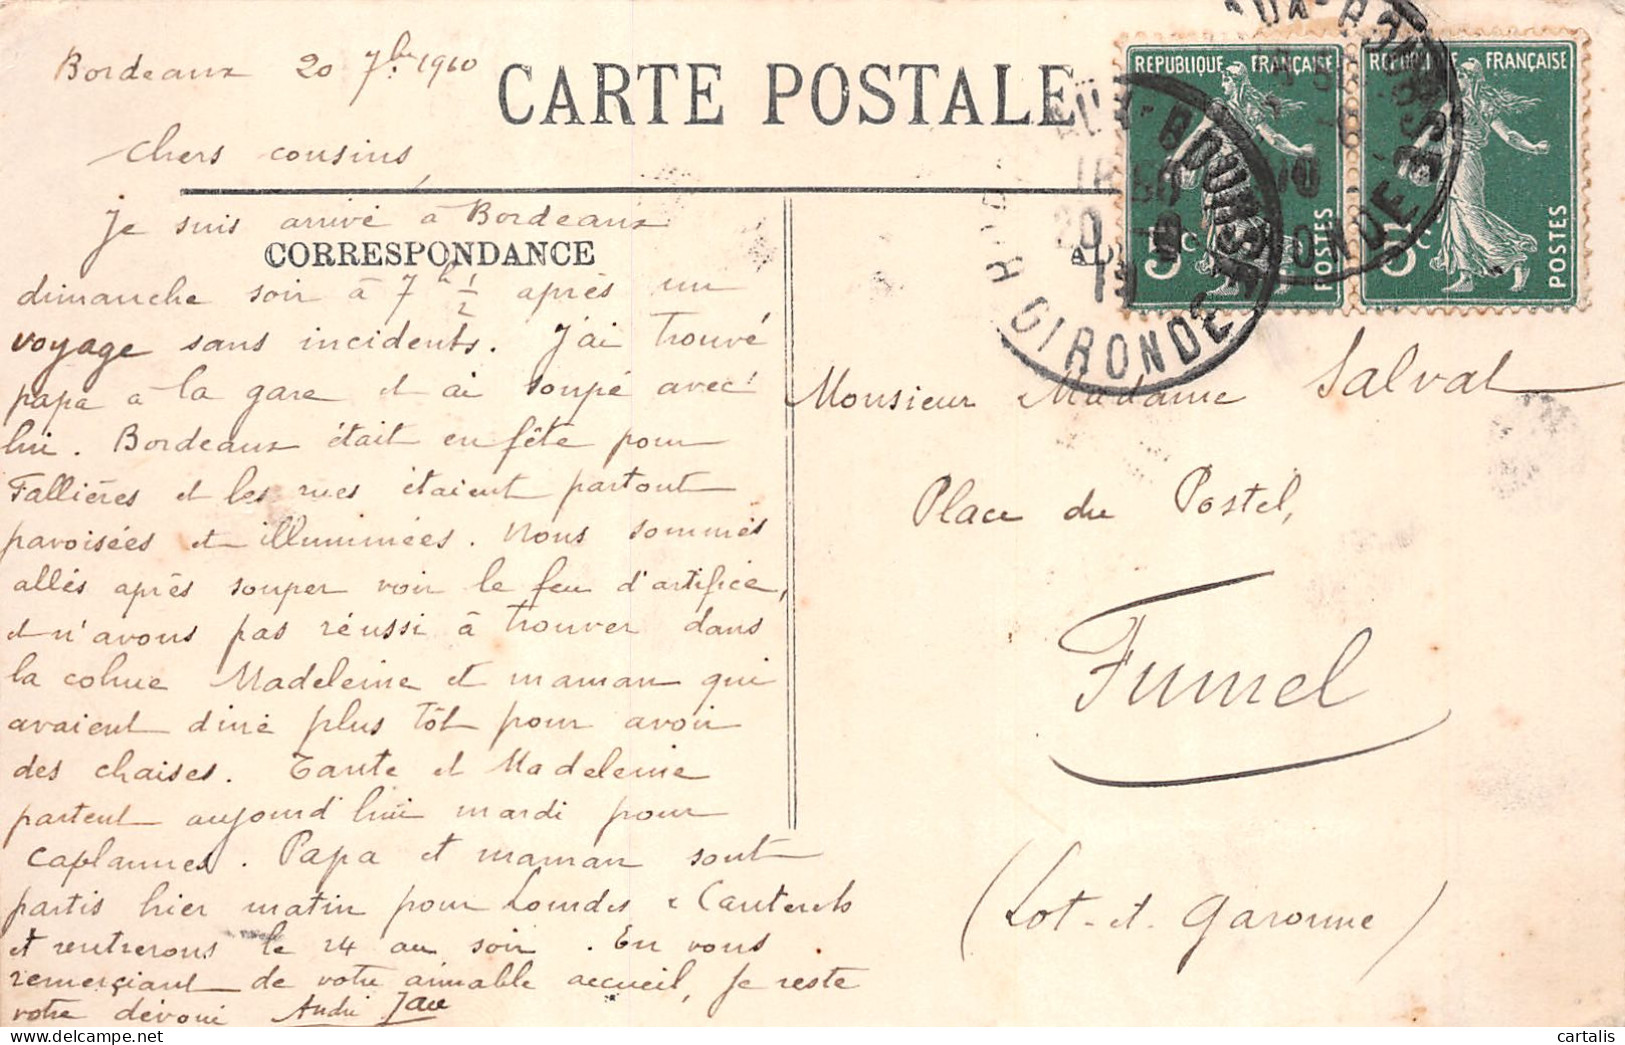 Bordeaux 20 7bre 1910
CARTE POSTALE
Chers cousins,
Je suis arrivé à Bordeaux
CORRESPONDANCE
dimanche soir à 7 h 1/2 après un
voyage sans incidents. J'ai trouvé
papa à la gare et ai soupé avec
lui. Bordeaux était en fête pour
Fallières et les rues étaient partout
pavoisées et illuminées. Nous sommes
allés après souper voir le feu d'artifice,
et n'avons pas réussi à trouver dans
la cohue Madeleine et maman qui
avaient diné plus tôt pour avoir
des chaises. Tante et Madeleine
partent aujourd'hui mardi pour
Caplannes. Papa et maman sont
partis hier matin pour Lourdes & Cauterets
et rentrerons le 24 au soir. En vous
remerçiant de votre aimable accueil, je reste
votre dévoué André
REPUBLIQUE FRANÇAISE
5c POSTES
REPUBLIQUE FRANÇAISE
5c POSTES
BOURSE
GIRONDE
BOURSE
GIRONDE
Monsieur & Madame Salval
Place du Postel,
Fumel
(Lot-et-Garonne)
cartalis